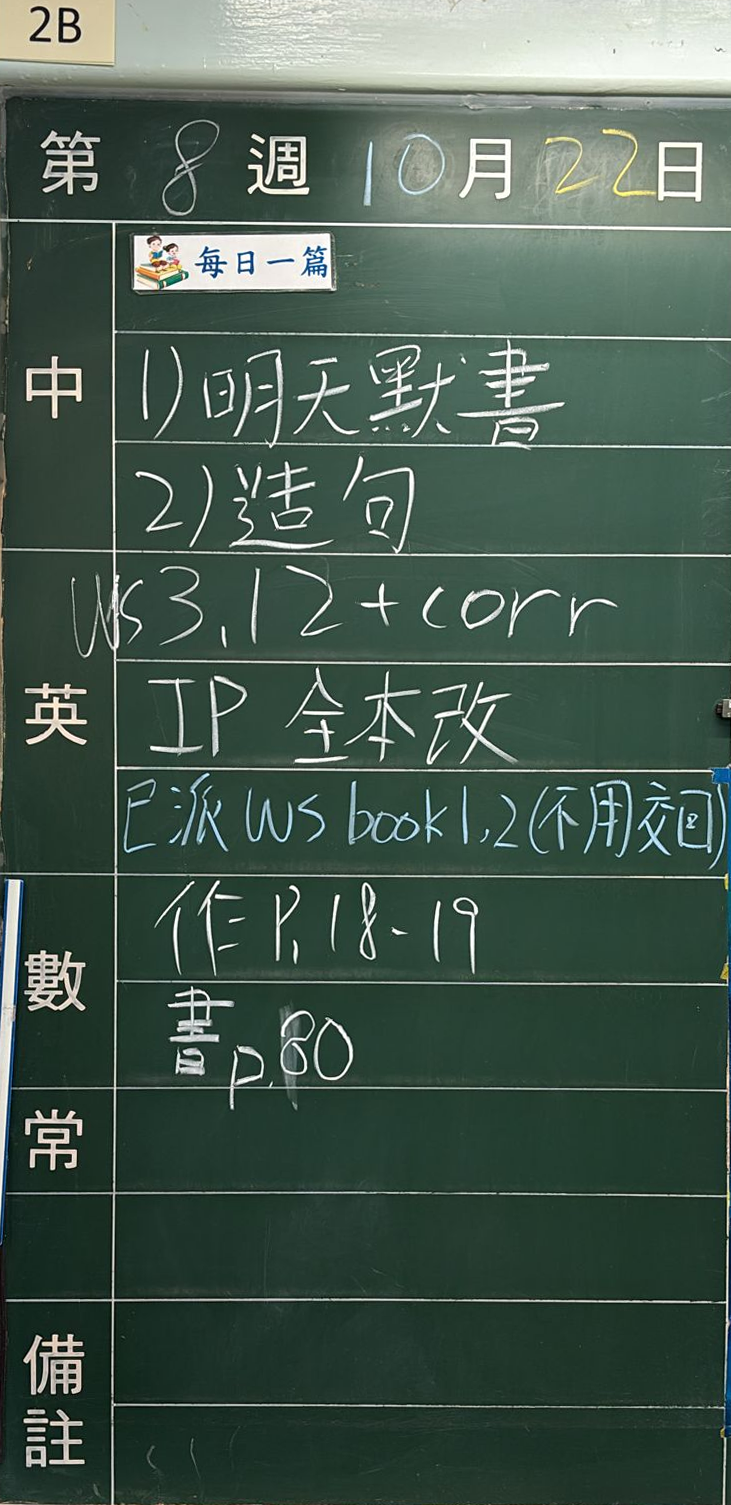 2B
第 8 週 10 月 22 日
中
每日一篇
1)明天默書
2)造句
英
WS 3,12 + corr
IP 全本改
已派 WS book 1,2 (不用交回)
數
作 P.18-19
書 p.80
常
備註